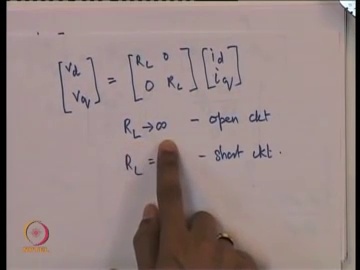 [v_d v_q] = [R_L 0 0 R_L] [i_d i_q]
R_L → ∞ - open ckt
R_L = - short ckt.